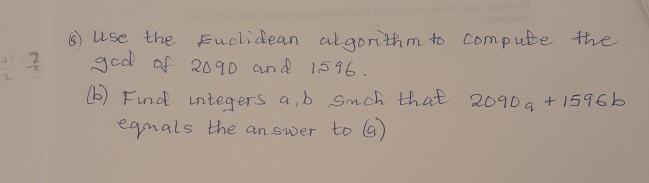 (a) Use the Euclidean algorithm to compute the
gcd of 2090 and 1596.
(b) Find integers a, b such that 2090a + 1596b
equals the answer to (a)